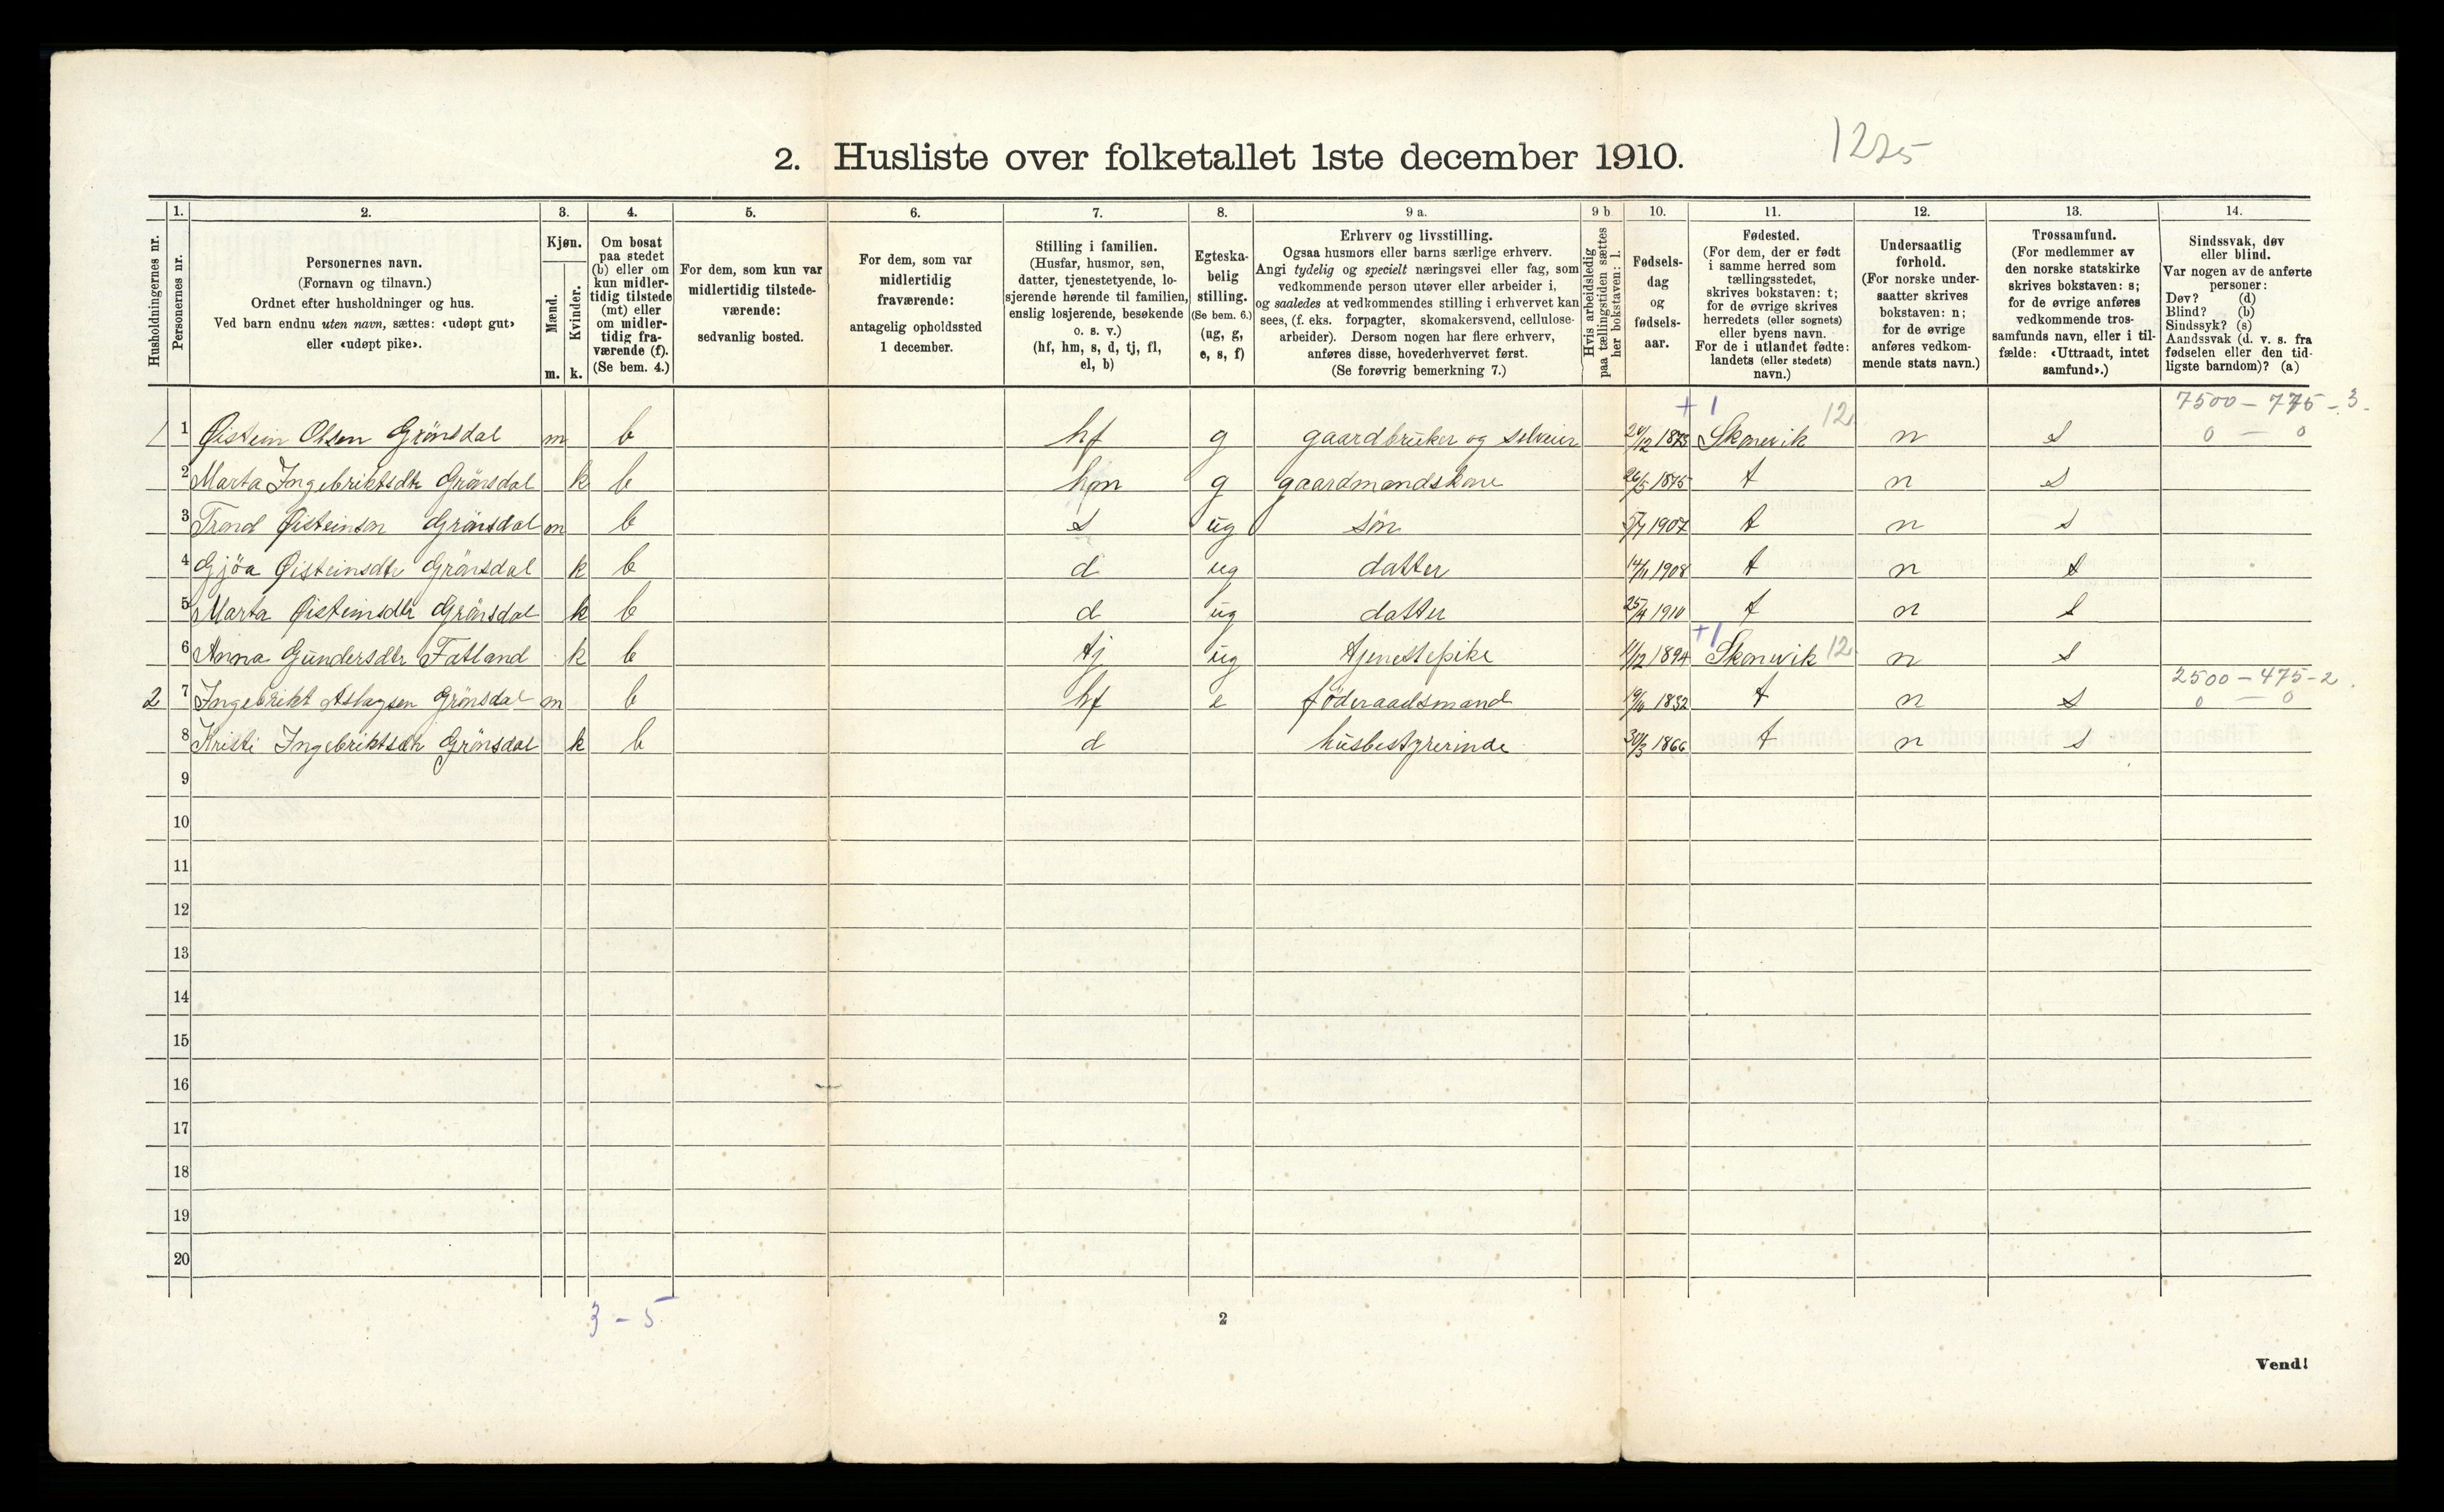 2. Husliste over folketallet 1ste december 1910.
1225
Husholdningernes nr.
1. Personernes nr.
2. Personernes navn.
(Fornavn og tilnavn.)
Ordnet efter husholdninger og hus.
Ved barn endnu uten navn, sættes: «udøpt gut»
eller «udøpt pike».
3. Kjøn.
Mænd. m.
Kvinder. k.
4. Om bosat
paa stedet
(b) eller om
kun midler-
tidig tilstede
(mt) eller
om midler-
tidig fra-
værende (f).
(Se bem. 4.)
5. For dem, som kun var
midlertidig tilstede-
værende:
sedvanlig bosted.
6. For dem, som var
midlertidig
fraværende:
antagelig opholdssted
1 december.
7. Stilling i familien.
(Husfar, husmor, søn,
datter, tjenestetyende, lo-
sjerende hørende til familien,
enslig losjerende, besøkende
o. s. v.)
(hf, hm, s, d, tj, fl,
el, b)
8. Egteska-
belig
stilling.
(Se bem. 6.)
(ug, g,
e, s, f)
9 a. Erhverv og livsstilling.
Ogsaa husmors eller barns særlige erhverv.
Angi tydelig og specielt næringsvei eller fag, som
vedkommende person utøver eller arbeider i,
og saaledes at vedkommendes stilling i erhvervet kan
sees, (f. eks. forpagter, skomakersvend, cellulose-
arbeider). Dersom nogen har flere erhverv,
anføres disse, hovederhvervet først.
(Se forøvrig bemerkning 7.)
9 b Hvis arbeidsledig
paa tællingstiden sættes
her bokstaven: l.
10. Fødsels-
dag
og
fødsels-
aar.
11. Fødested.
(For dem, der er født
i samme herred som
tællingsstedet,
skrives bokstaven: t;
for de øvrige skrives
herredets (eller sognets)
eller byens navn.
For de i utlandet fødte:
landets (eller stedets)
navn.)
12. Undersaatlig
forhold.
(For norske under-
saatter skrives
bokstaven: n;
for de øvrige
anføres vedkom-
mende stats navn.)
13. Trossamfund.
(For medlemmer av
den norske statskirke
skrives bokstaven: s;
for de øvrige anføres
vedkommende tros-
samfunds navn, eller i til-
fælde: «Uttraadt, intet
samfund».)
14. Sindssvak, døv
eller blind.
Var nogen av de anførte
personer:
Døv? (d)
Blind? (b)
Sindssyk? (s)
Aandssvak (d. v. s. fra
fødselen eller den tid-
ligste barndom)? (a)
+ 1 12 7500 – 775 – 3.
1 1 Øistein Olsen Grönsdal m b hf g gaardbruker og selveier 20/12 1873 Skonevik n s 0 – 0
2 Marta Ingebriktsdtr Grönsdal k b hm g gaardmandskone 26/5 1875 t n s
3 Trond Øisteinson Grönsdal m b s ug sön 5/7 1907 t n s
4 Gjöa Øisteinsdtr Grönsdal k b d ug datter 14/11 1908 t n s
5 Marta Øisteinsdtr Grönsdal k b d ug datter 25/4 1910 t n s
+1
6 Anna Gundersdtr Fatland k b tj ug tjenestepike 11/12 1894 Skonevik 12 n s
2500 – 475 – 2.
2 7 Ingebrikt Aslagsen Grönsdal m b hf e föderaadsmand 19/10 1832 t n s 0 – 0
8 Kristi Ingebriktsdtr Grönsdal k b d husbestyrerinde 30/3 1866 t n s
9
10
11
12
13
14
15
16
17
18
19
20
3 – 5
2
Vend!